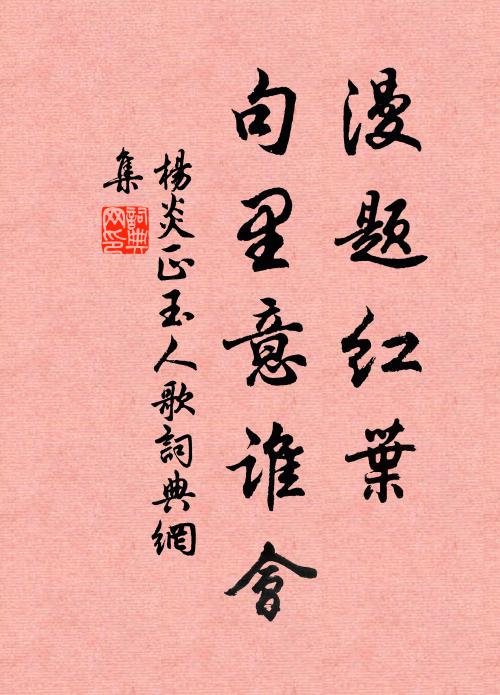 漫题红葉
句里意谁會
楊炎正玉人歌詞典網
集
詞典
网印